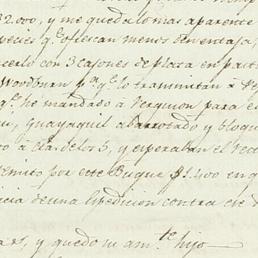 32.000, y me queda lo mas aparente
species q.e ofrescan menos ventaja,
cerlo con 3 cajones de plata en part
Woodburn p.a q.e lo transmitan à
q.e he mandado à Ferguson para
Guayaquil abarrotado y bloque
to à Cta. de los 3, y esperaban el
remito por este Buque $1.400 en
cia de una Espedicion contra ese
y quedo tu am.te hijo